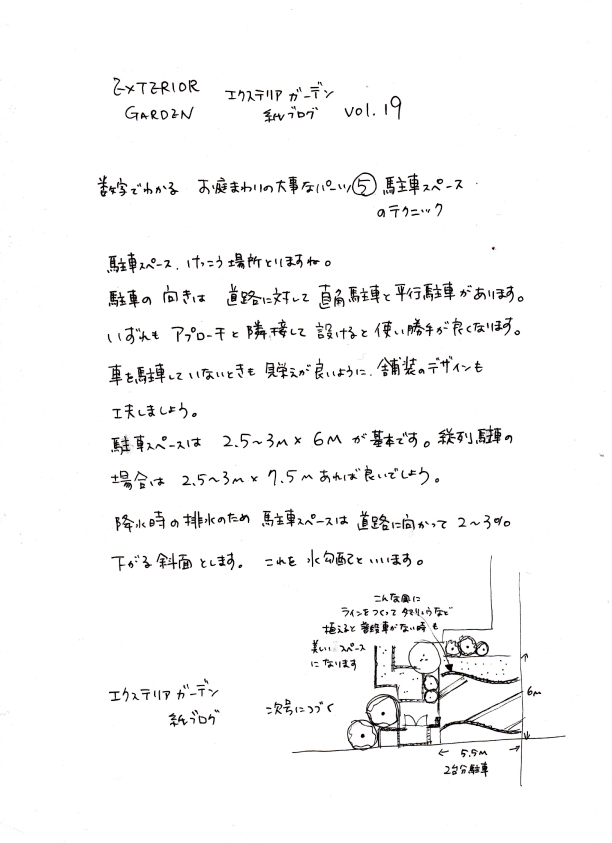 EXTERIOR エクステリア ガーデン
GARDEN 紙ブログ vol.19
数字でわかる お庭まわりの大事なパーツ⑤ 駐車スペース
のテクニック
駐車スペース、けっこう場所とりますね。
駐車の 向きは 道路に対して 直角駐車と平行駐車があります。
いずれも アプローチと隣接して 設けると使い勝手が良くなります。
車を駐車していないときも 見栄えが良いように、舗装のデザインも
工夫しましょう。
駐車スペースは 2.5~3m × 6m が基本です。縦列駐車の
場合は 2.5~3m × 7.5m あれば良いでしょう。
降水時の排水のため 駐車スペースは 道路に向かって 2~3%
下がる斜面とします。 これを 水勾配といいます。
こんな風に
ラインをつくって タマリュウなど
植えると 普段車がない時も
美しい スペース
になります
6m
エクステリア ガーデン
紙ブログ
次号につづく
5.5m
2台分駐車